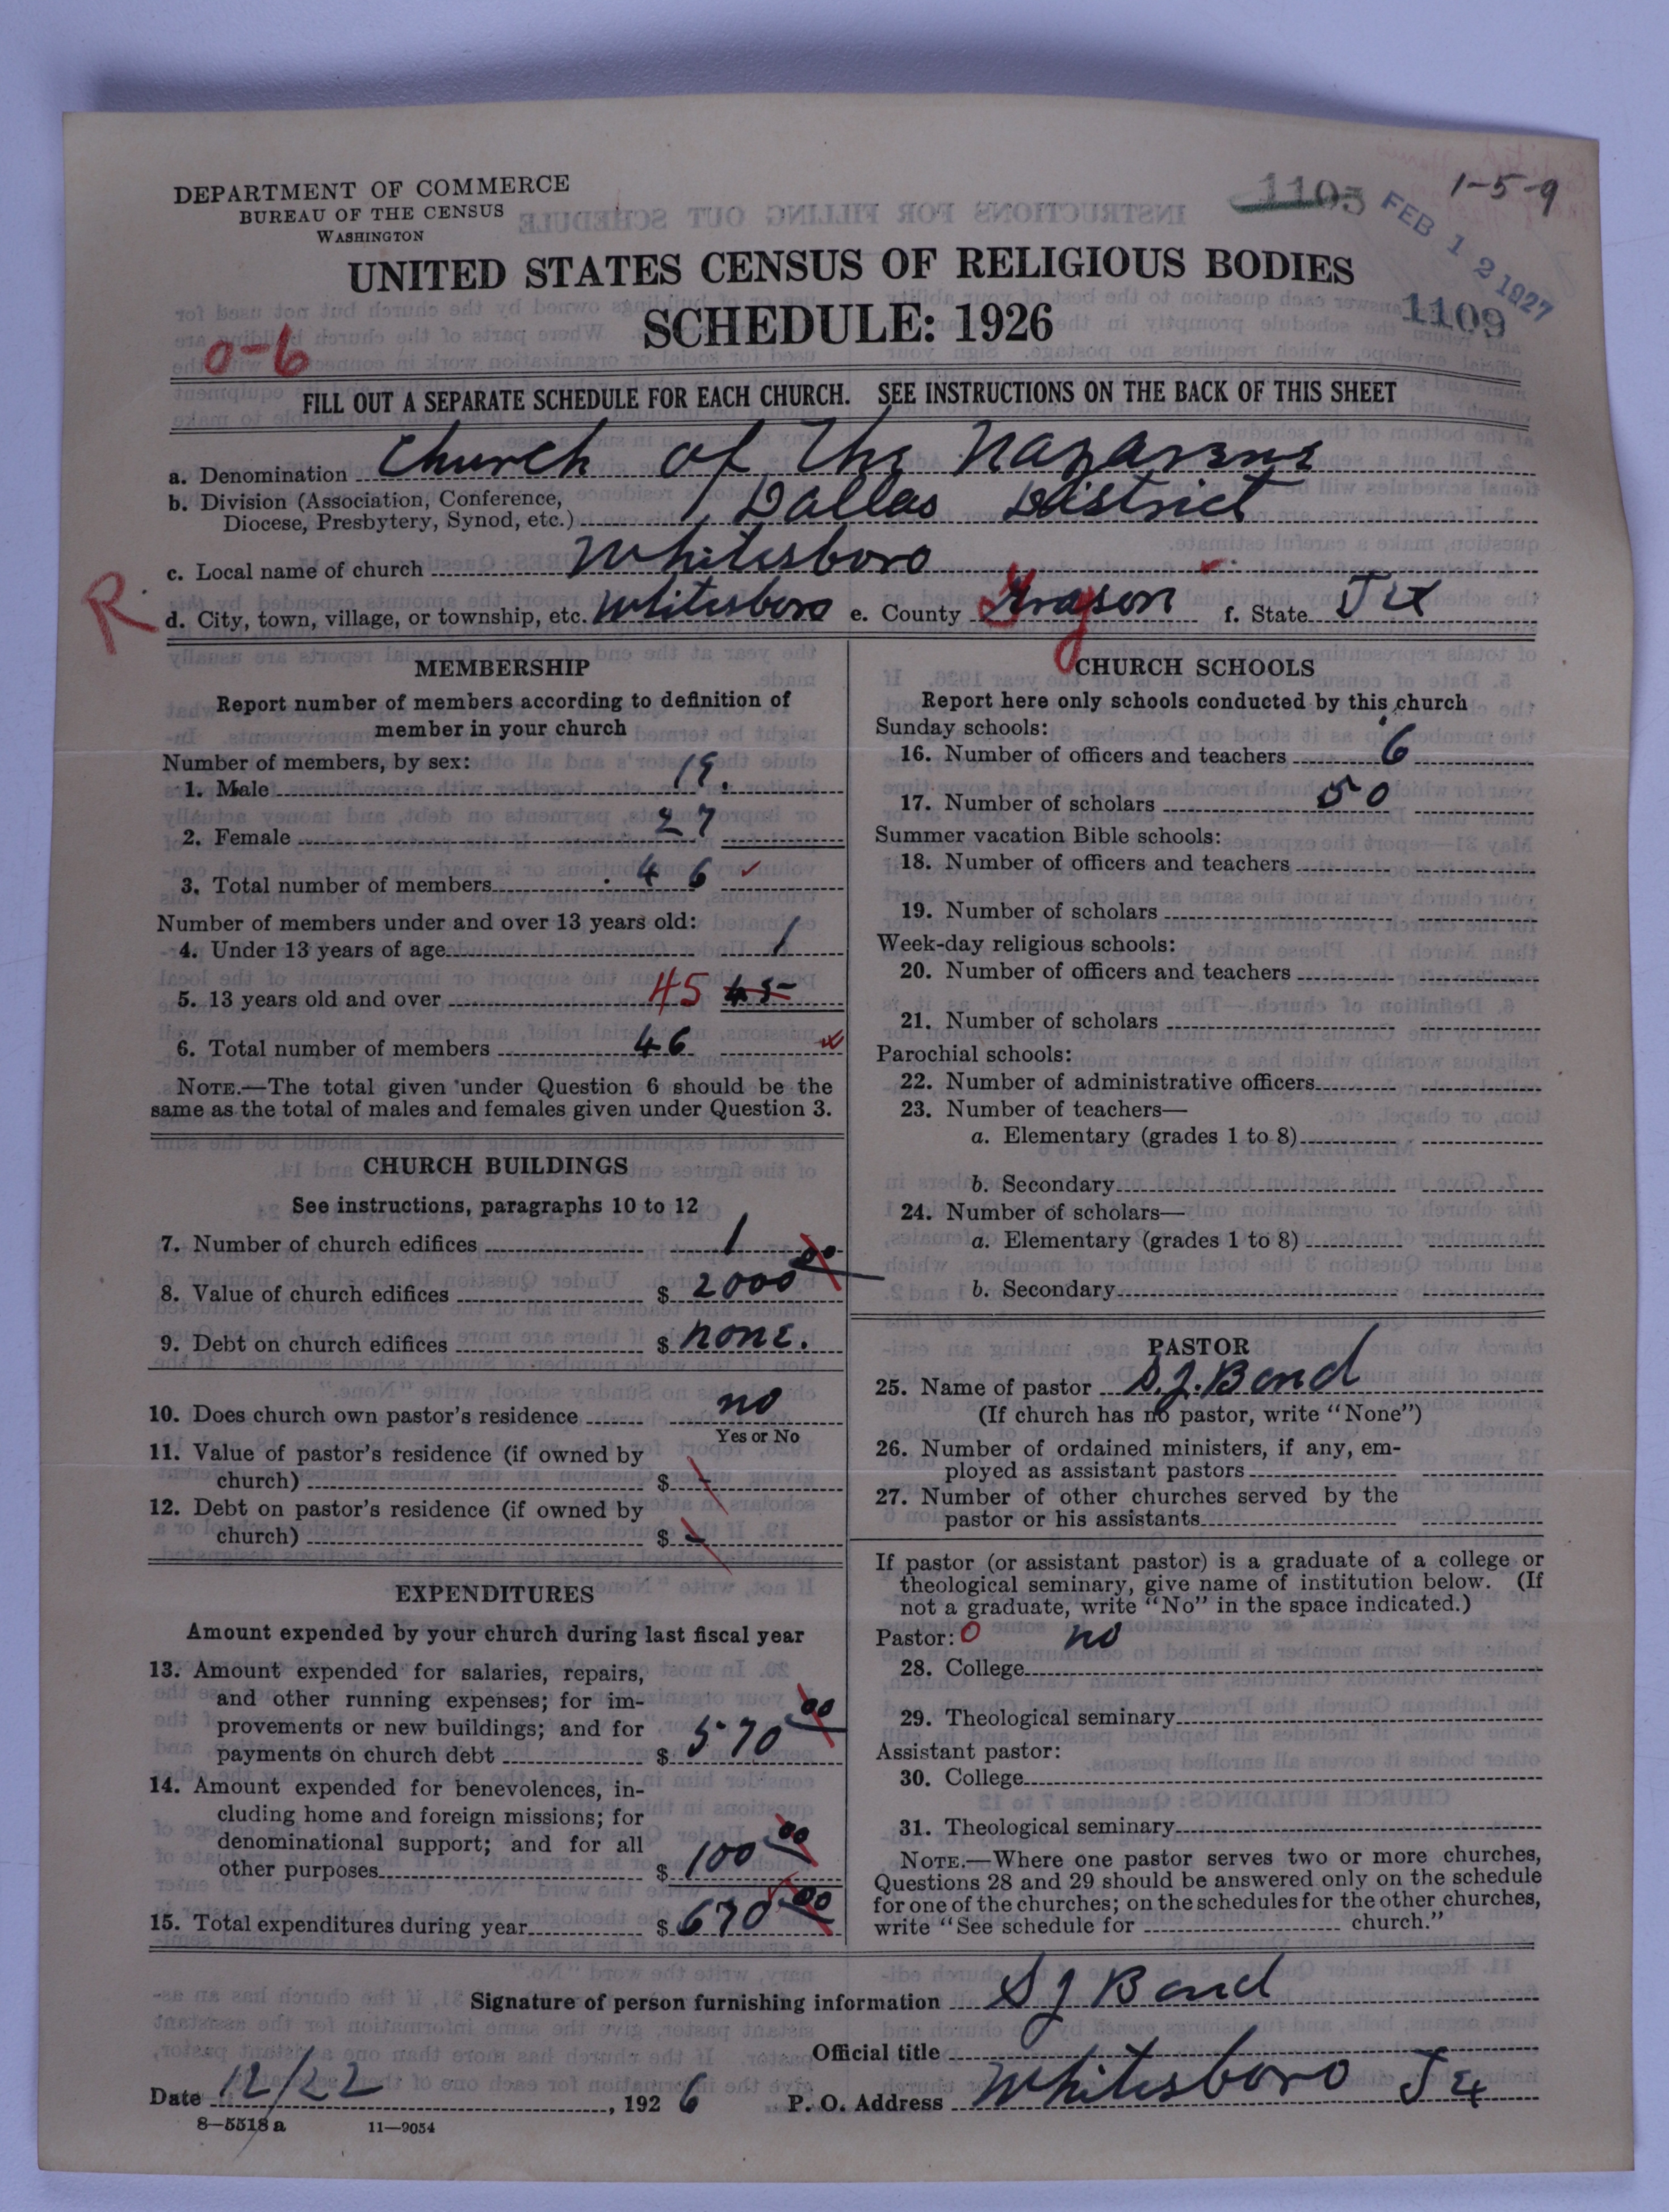 DEPARTMENT OF COMMERCE
BUREAU OF THE CENSUS
WASHINGTON
1105
1-5-9
FEB 12 1927
1109
UNITED STATES CENSUS OF RELIGIOUS BODIES
SCHEDULE: 1926
0-6
FILL OUT A SEPARATE SCHEDULE FOR EACH CHURCH. SEE INSTRUCTIONS ON THE BACK OF THIS SHEET
a. Denomination Church of The Nazarene
b. Division (Association, Conference,
Diocese, Presbytery, Synod, etc.) Dallas District
c. Local name of church Whitesboro
R
d. City, town, village, or township, etc. Whitesboro e. County Grayson f. State Tex
MEMBERSHIP
Report number of members according to definition of
member in your church
Number of members, by sex:
1. Male 19.
2. Female 27
3. Total number of members 46
Number of members under and over 13 years old:
4. Under 13 years of age 1
5. 13 years old and over 45 45
6. Total number of members 46
NOTE.—The total given under Question 6 should be the
same as the total of males and females given under Question 3.
CHURCH BUILDINGS
See instructions, paragraphs 10 to 12
7. Number of church edifices 1
8. Value of church edifices $ 2000 00
9. Debt on church edifices $ none.
10. Does church own pastor's residence no
Yes or No
11. Value of pastor's residence (if owned by
church) $ -
12. Debt on pastor's residence (if owned by
church) $ -
EXPENDITURES
Amount expended by your church during last fiscal year
13. Amount expended for salaries, repairs,
and other running expenses; for im-
provements or new buildings; and for
payments on church debt $ 570 00
14. Amount expended for benevolences, in-
cluding home and foreign missions; for
denominational support; and for all
other purposes $ 100 00
15. Total expenditures during year $ 670 00
CHURCH SCHOOLS
Report here only schools conducted by this church
Sunday schools:
16. Number of officers and teachers 6
17. Number of scholars 50
Summer vacation Bible schools:
18. Number of officers and teachers
19. Number of scholars
Week-day religious schools:
20. Number of officers and teachers
21. Number of scholars
Parochial schools:
22. Number of administrative officers
23. Number of teachers—
a. Elementary (grades 1 to 8)
b. Secondary
24. Number of scholars—
a. Elementary (grades 1 to 8)
b. Secondary
PASTOR
25. Name of pastor S.J. Bond
(If church has no pastor, write "None")
26. Number of ordained ministers, if any, em-
ployed as assistant pastors
27. Number of other churches served by the
pastor or his assistants
If pastor (or assistant pastor) is a graduate of a college or
theological seminary, give name of institution below. (If
not a graduate, write "No" in the space indicated.)
Pastor: 0 no
28. College
29. Theological seminary
Assistant pastor:
30. College
31. Theological seminary
NOTE.—Where one pastor serves two or more churches,
Questions 28 and 29 should be answered only on the schedule
for one of the churches; on the schedules for the other churches,
write "See schedule for church."
Signature of person furnishing information S J Bond
Official title
Date 12/22, 1926 P. O. Address Whitesboro Tex
8—5518 a 11—9054